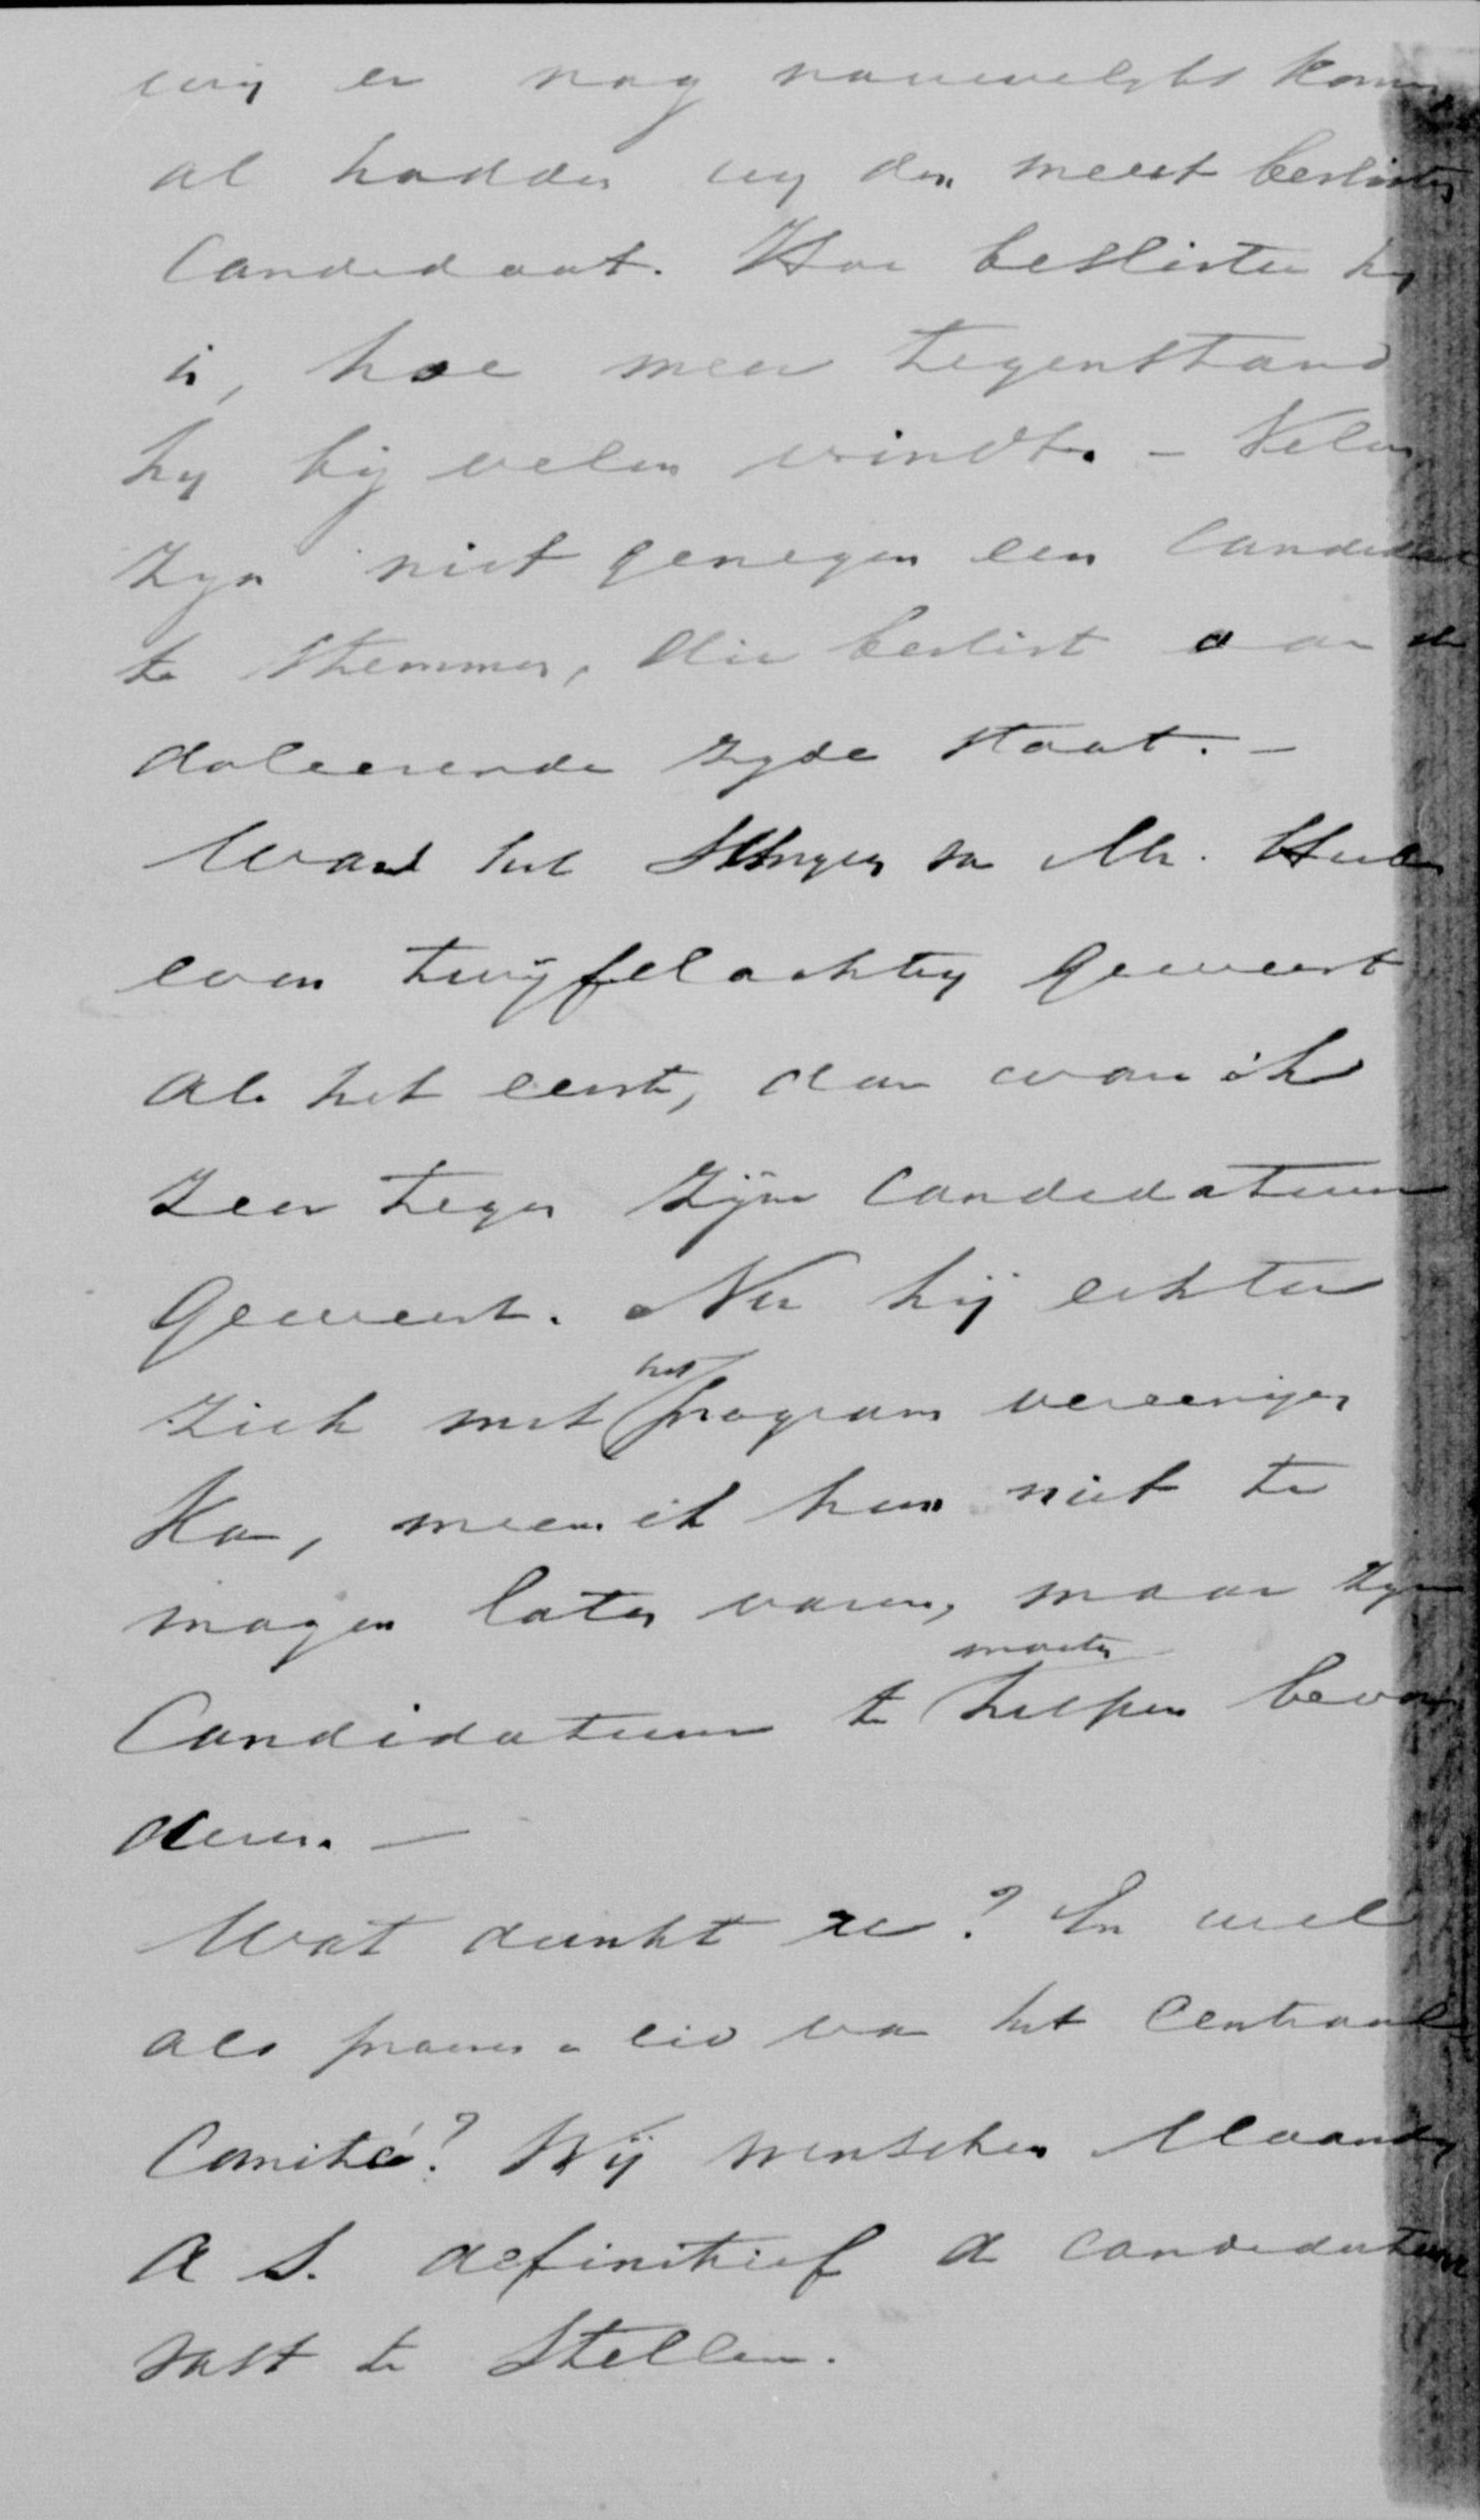 wij er nog nauwelijks kom
al hadden wij den meest beslisten
Candidaat. Hoe beslister hij
is, hoe meer tegenstand
hij bij velen vindt. - Velen
zijn niet genegen een Candidaat
te stemmen, die beslist aan de
doleerende zijde staat. -
Was het schrijven van Mr.
even twijfelachtig geweest
als het eerste, dan ware ik
zeer tegen zijne Candidatuur
geweest. Nu hij echter
zich met het program vereenigen
kan, meen ik hem niet te
mogen laten varen, maar zijn
Candidatuur te moeten helpen bevor
deren. -
Wat dunkt u? En wel
als praeses en lid van het Centraal
Comité? Wij wenschen Maandag
a s. definitief de candidatuur
vast te stellen.